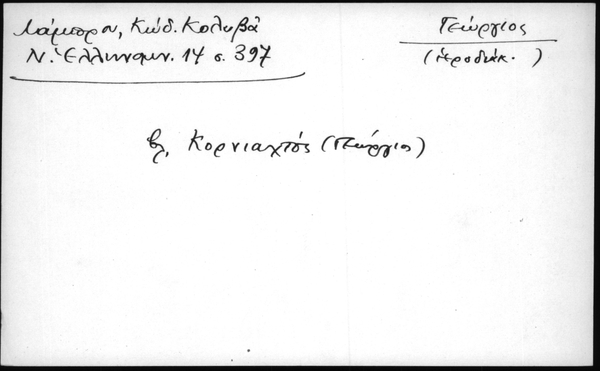 Λάμπρου, Κώδ. Κολυβᾶ
Ν. Ἑλληνομν. 14 σ. 397
Γεώργιος
(ἱεροδιάκ. )
βλ. Κορνιαχτός (Γεώργιος)